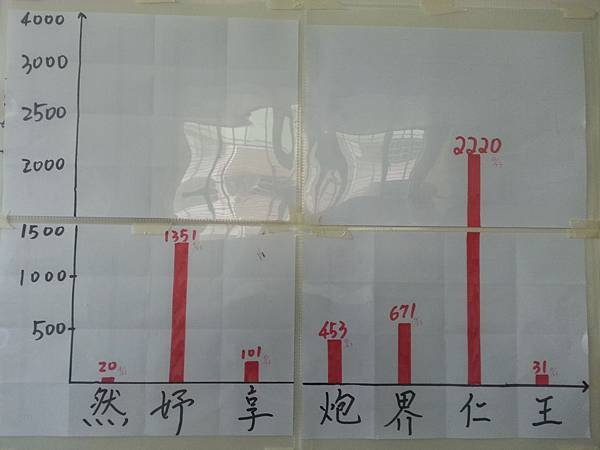 4000
3000
2500
2000
1500
1000
500
20%
1351%
101%
453%
671%
2220%
31%
然 妤 享 炮 界 仁 王